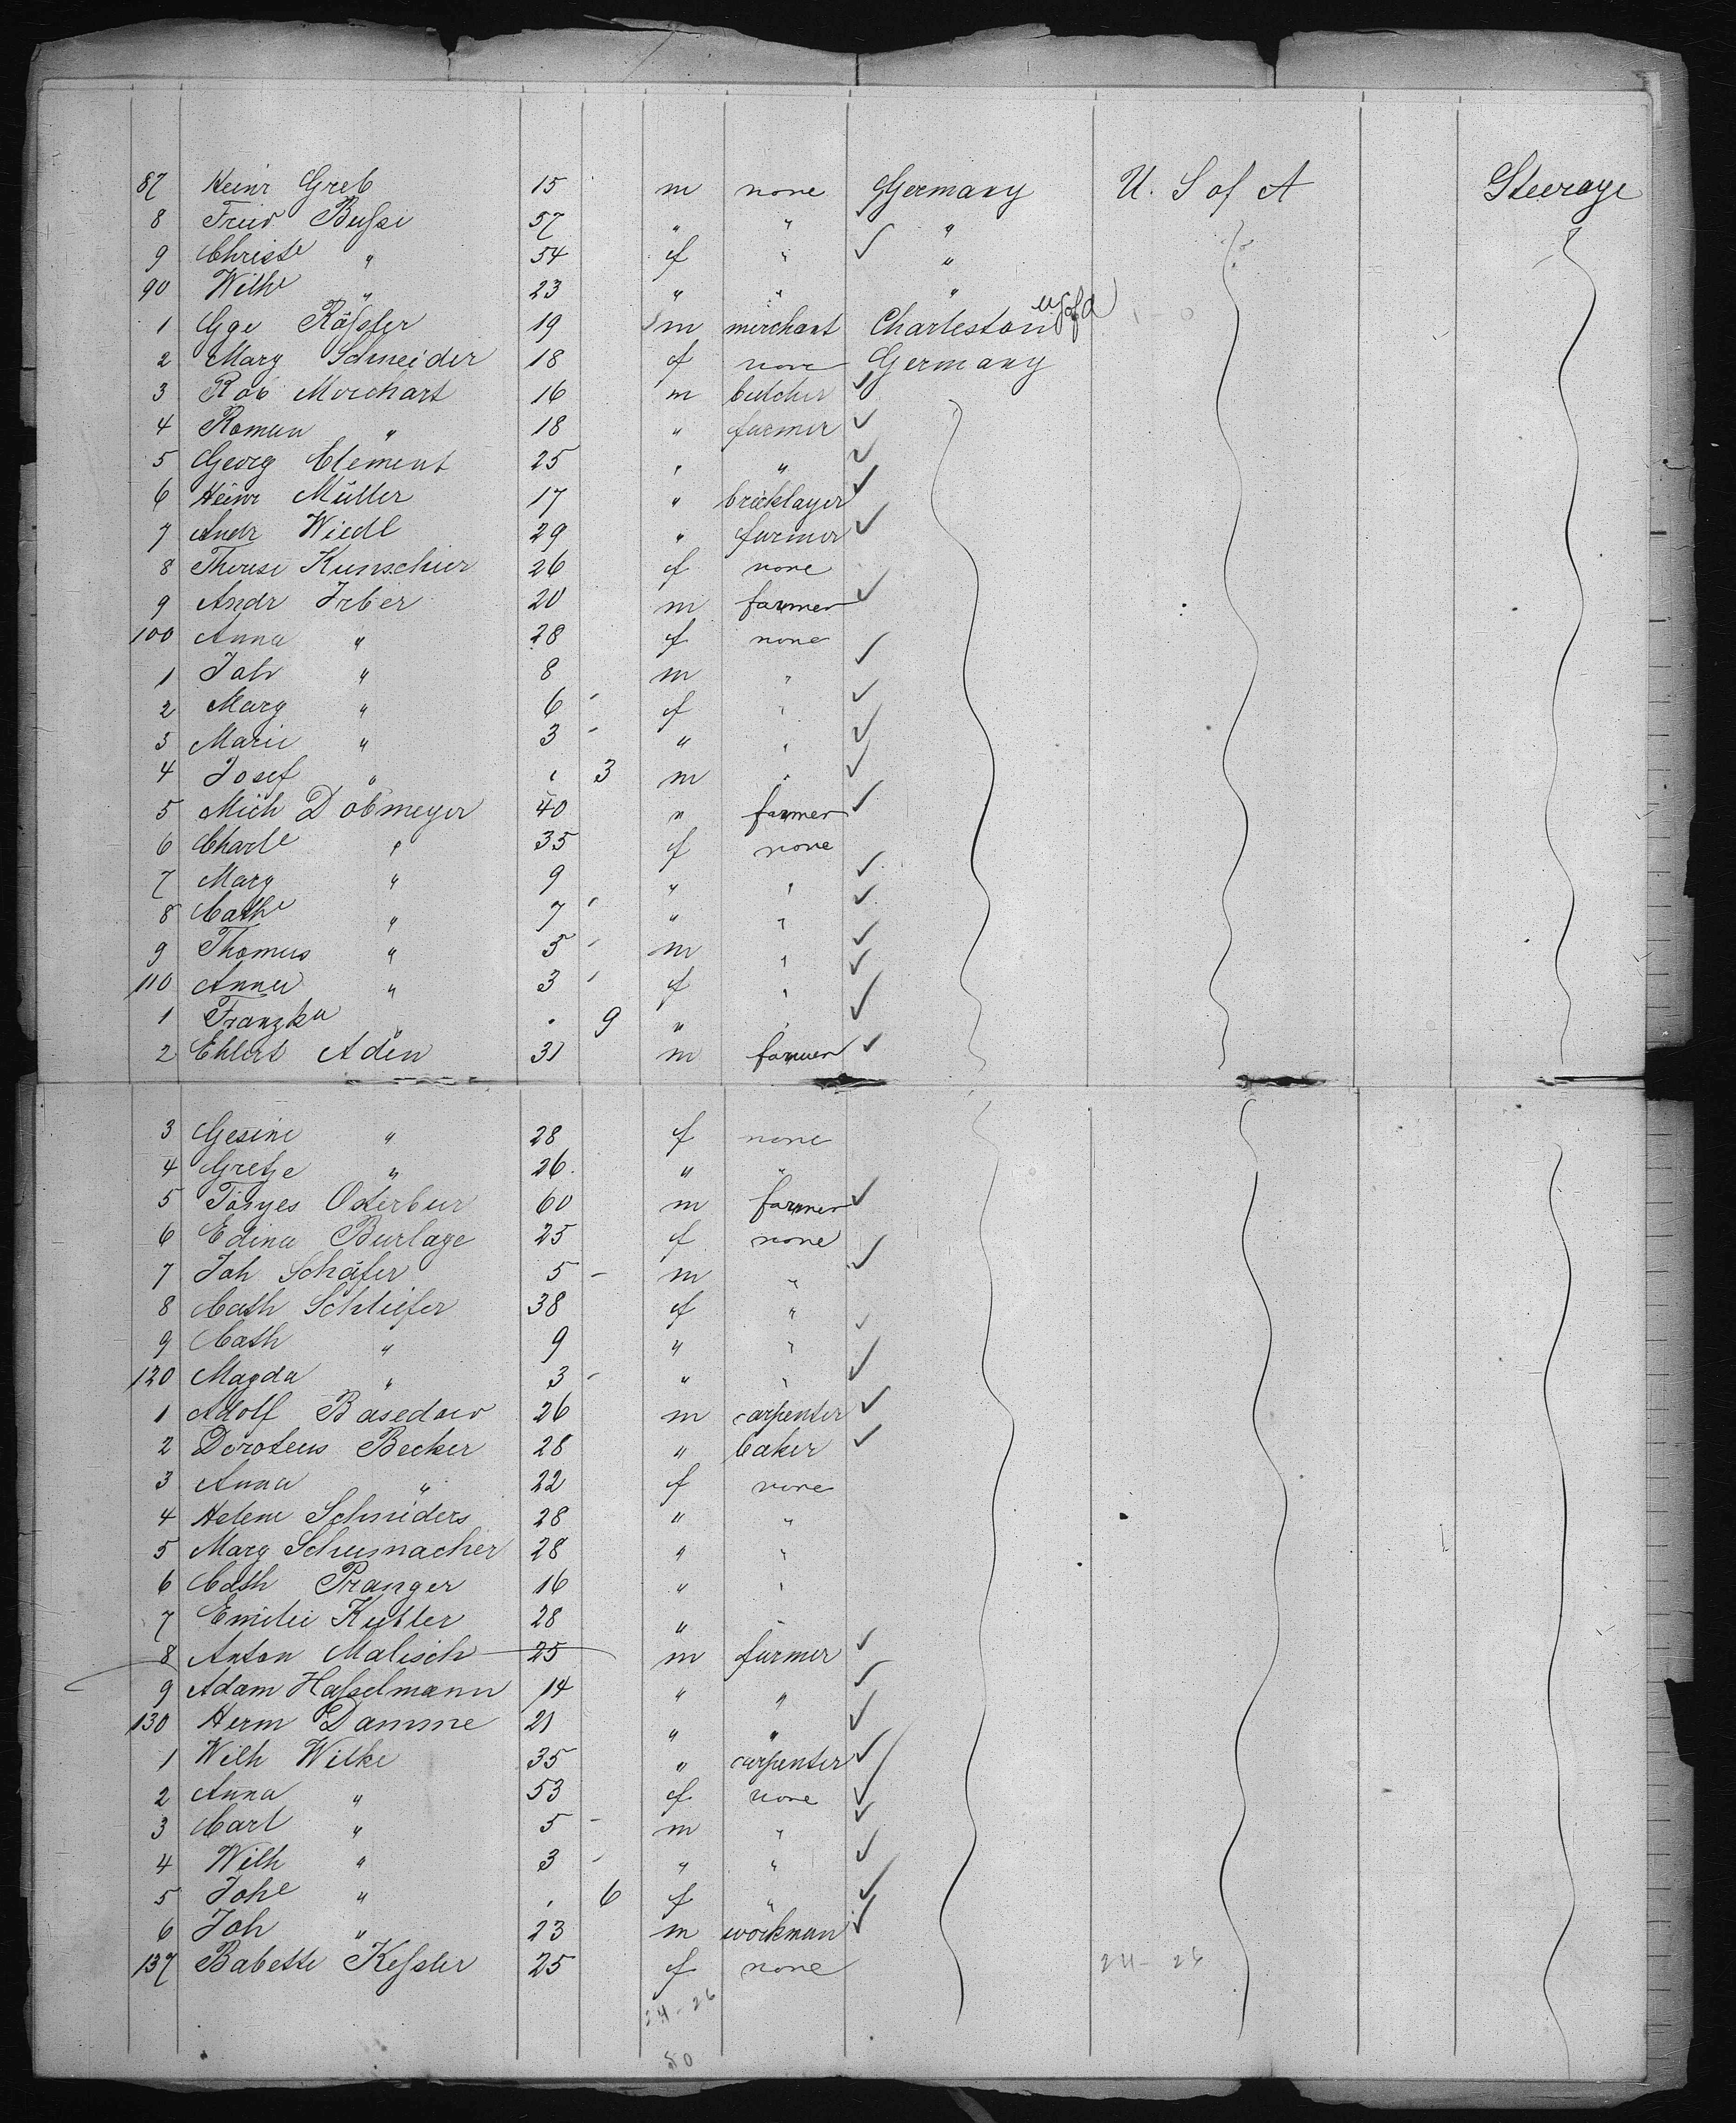 87 Heinr Greb 15 m none Germany U. S of A Steerage
8 Fried Bußse 57 " " "
9 Christe " 54 f " "
90 Wilhe " 23 " " "
1 Gge Rößler 19 m merchant Charleston U S of A
2 Marg Schneider 18 f none Germany
3 Rob Morchart 16 m butcher
4 Roman " 18 " farmer
5 Georg Clement 25 " "
6 Heinr Müller 17 " bricklayer
7 Andr Wiedl 29 " farmer
8 Therese Kunschier 26 f none
9 Andr Irber 20 m farmer
100 Anna " 28 f none
1 Joh " 8 m "
2 Marg " 6 f "
3 Marie " 3 " "
4 Josef " " 3 m "
5 Mich Dobmeyer 40 " farmer
6 Charle " 35 f none
7 Marg " 9 " "
8 Cathe " 7 " "
9 Thomas " 5 m "
110 Anna " 3 f "
1 Franzka " . 9 " "
2 Ehlert Aden 31 m farmer
3 Gesine " 28 f none
4 Gretje " 26 " "
5 Osterbur 60 m farmer
6 Edina Burlage 25 f none
7 Joh Schäfer 5 - m "
8 Cath Schliefer 38 f "
9 Cath " 9 " "
120 Magda " 3 - " "
1 Adolf Basedow 26 m carpenter
2 Doroteus Becker 28 " baker
3 Anna " 22 f none
4 Helene Schnieders 28 " "
5 Marg Schumacher 28 " "
6 Cath Pranger 16 " "
7 Emilie Kutler 28 " "
8 Anton Malisch 25 m farmer
9 Adam Haßelmann 14 " "
130 Herm Damme 21 " "
1 Wilh Wilke 35 " carpenter
2 Anna " 53 f none
3 Carl " 5 - m "
4 Wilh " 3 - " "
5 Johe " . 6 f "
6 Joh " 23 m workman
137 Babette Keßler 25 f none 24 - 26
24 - 26
50